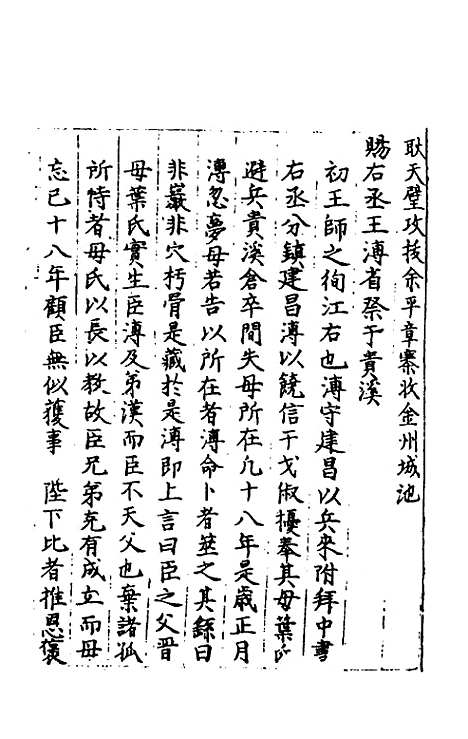 耿天璧攻援余平章寨收金州城池
賜右丞王溥省祭于貴溪
初王師之徇江右也溥守建昌以兵來附拜中書
右丞分鎮建昌溥以饒信干戈俶擾奉其母葉氏
避兵貴溪倉卒間失母所在凡十八年是歲正月
溥忽夢母若告以所在者溥命卜者莁之其繇曰
非巖非穴朽骨是藏於是溥即上言曰臣之父晋
母葉氏實生臣溥及弟漢而臣不天父也棄諸孤
所恃者母氏以長以教故臣兄弟克有成立而母
忘已十八年顧臣無似獲事 陛下比者推恩褒